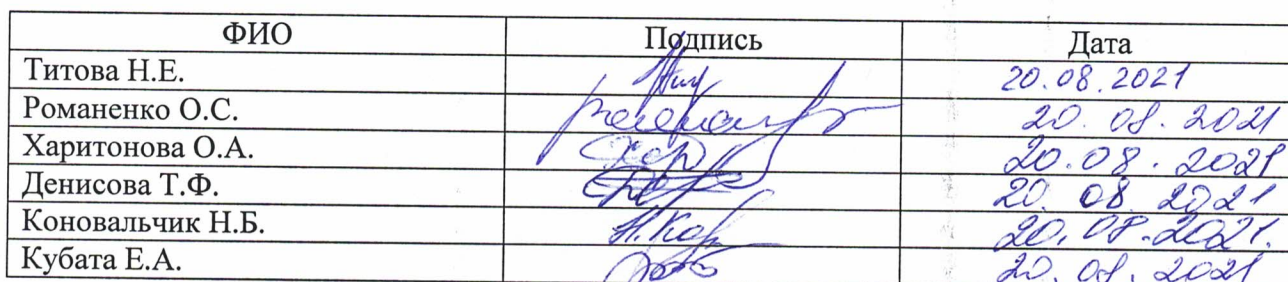 ФИО Подпись Дата
Титова Н.Е. 20.08.2021
Романенко О.С. 20.08.2021
Харитонова О.А. 20.08.2021
Денисова Т.Ф. 20.08.2021
Коновальчик Н.Б. 20.08.2021.
Кубата Е.А. 20.08.2021